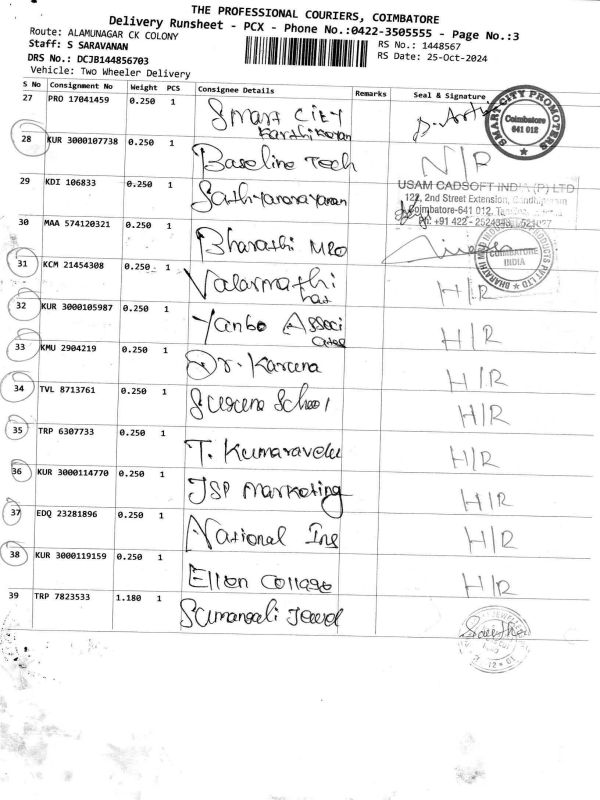 THE PROFESSIONAL COURIERS, COIMBATORE
Delivery Runsheet - PCX - Phone No.:0422-3505555 - Page No.:3
Route: ALAMUNAGAR CK COLONY
RS No.: 1448567
Staff: S SARAVANAN
RS Date: 25-Oct-2024
DRS No.: DCJB144856703
Vehicle: Two Wheeler Delivery
S No Consignment No Weight PCS Consignee Details Remarks Seal & Signature
27 PRO 17041459 0.250 1 Smart City
Karthikeyan
SMART CITY PROMOTERS
Coimbatore
641 012
28 KUR 3000107738 0.250 1 Baseline Tech N|R
29 KDI 106833 0.250 1 Sathyanarayanan
USAM CADSOFT INDIA (P) LTD
122, 2nd Street Extension, Gandhipuram
Coimbatore-641 012,
+91 422 -
30 MAA 574120321 0.250 1 Bharathi MRO
BHARATHI MRO PRODUCTS PVT LTD
COIMBATORE
INDIA
31 KCM 21454308 0.250 1 Valarmathi H|R
32 KUR 3000105987 0.250 1 Yanbo Associ H|R
ates
33 KMU 2904219 0.250 1 Dr. Kareena H|R
34 TVL 8713761 0.250 1 School H|R
35 TRP 6307733 0.250 1 T. Kumaravelu H|R
36 KUR 3000114770 0.250 1 JSP Marketing H|R
37 EDQ 23281896 0.250 1 National Ins H|R
38 KUR 3000119159 0.250 1 Ellen College H|R
39 TRP 7823533 1.180 1 Sumangali Jewel